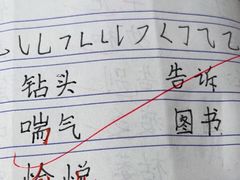 钻头 告诉
喘气 图书
愉悦